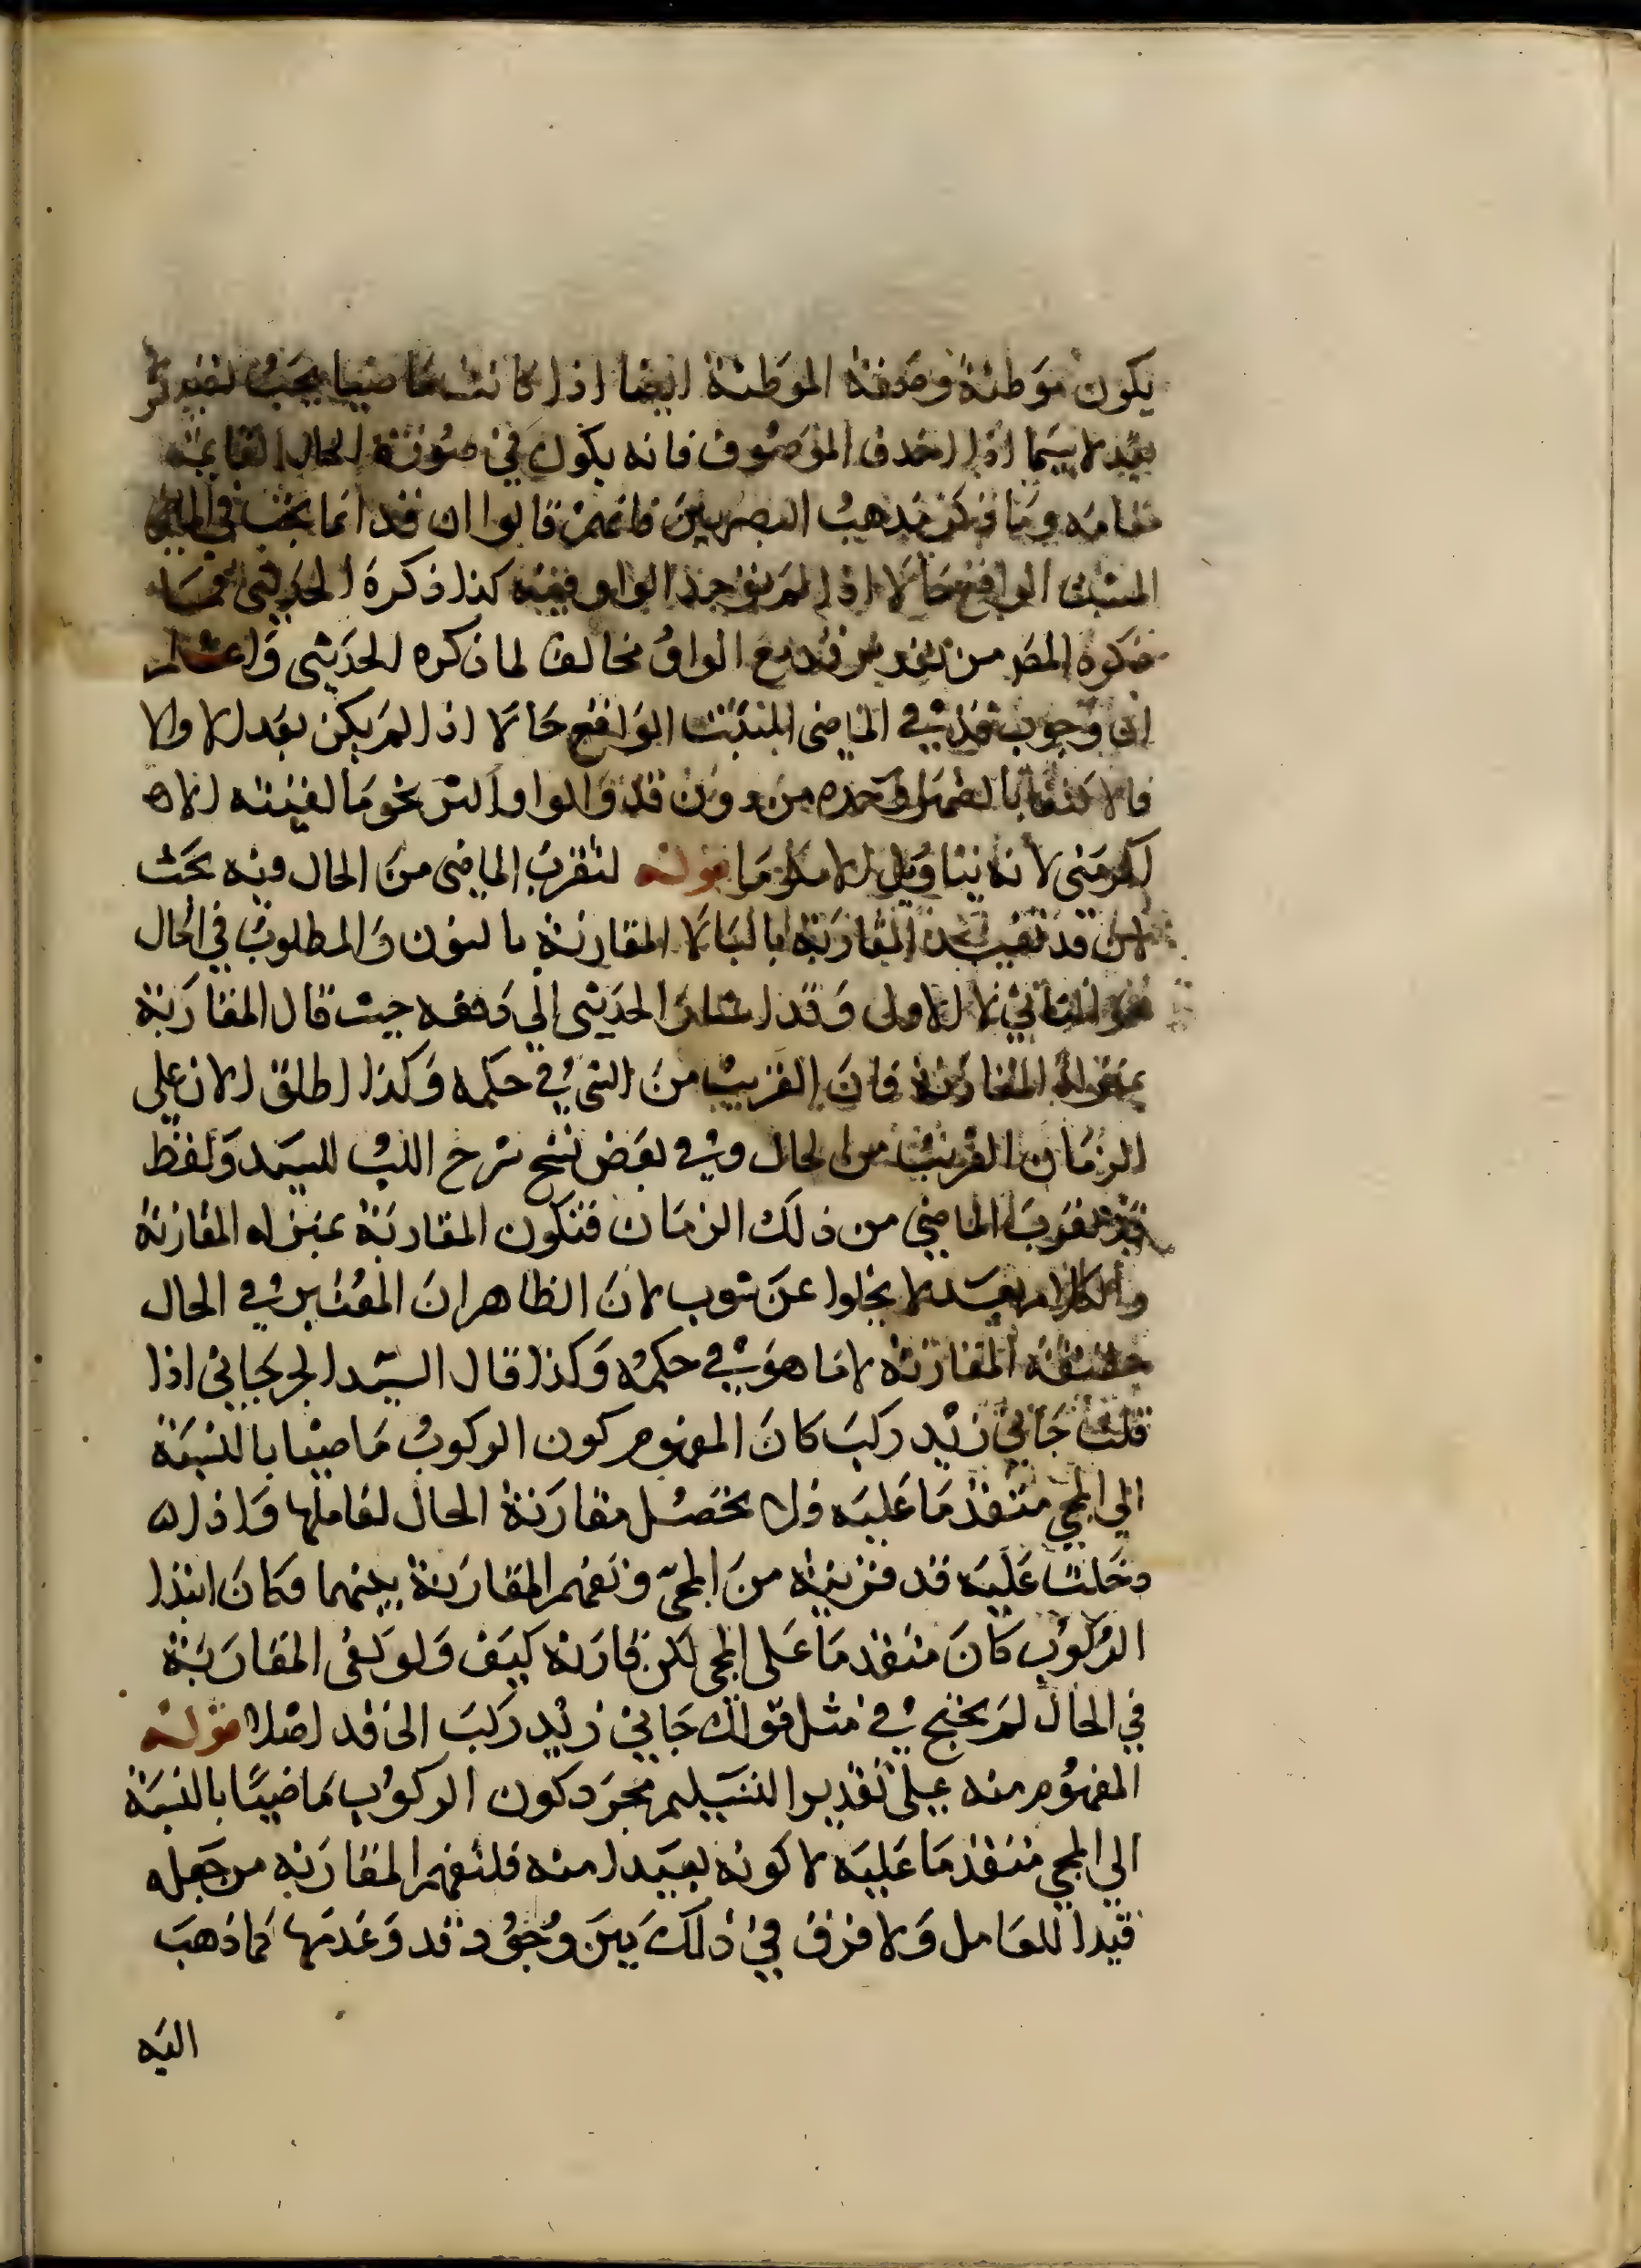 يكون موطئة وصفة الموطئة ايضا اذا كانت ماضيا يجب تصدير
لا سيما اذا حذف الموصوف فانه يكون في صورة الحال القايمة
مقامه وما ذكر مذهب البصريين فانهم قالوا ان قد انما يجب في الماضي
المثبت الواقع حالا اذا لم يوجد الواو فيه كذا ذكره الحديثي فما
ذكره المص من تقدير قد مع الواو مخالف لما ذكره الحديثي واعلم
ان وجوب قد في الماضي المثبت الواقع حالا اذا لم يكن بعد الا والا
فالاكتفا بالضمير وحده من دون قد والواو اكثر نحو ما لقيته الا
اكرمني لانه بتاويل الا مكرما قوله لتقرب الماضي من الحال وفيه بحث
لان قد تفيد المقاربة بالبا لا المقارنة بالنون والمطلوب في الحال
هو الثاني لا الاول وقد اشار الحديثي الي دفعه حيث قال المقاربة
بمنزلة المقارنة فان القريب من الشي في حكمه وكذا اطلق الان علي
الزمان القريب من الحال وفي بعض نسخ شرح اللب للسيد ولفظ
قد تقرب الماضي من ذلك الزمان فتكون المقاربة بمنزله المقارنة
والكلام بعد لا يخلوا عن شوب لان الظاهر ان المعتبر في الحال
حقيقة المقارنة لا ما هو في حكمه وكذا قال السيد الجرجاني اذا
قلت جاني زيد ركب كان المفهوم كون الركوب ماضيا بالنسبة
الي المجي متقدما عليه فلا يحصل مقارنة الحال لعاملها واذا
دخلت عليه قد قربته من المجي وتفهم المقارنة بينهما فكان ابتدا
الركوب كان متقدما على المجي لكن قارنه كيف ولو كفى المقاربة
في الحال لم يحتج في مثل قولك جاني زيد ركب الى قد اصلا قوله
المفهوم منه على تقدير التسليم مجرد كون الركوب ماضيا بالنسبة
الي المجي متقدما عليه لا كونه بعيدا منه فلتفهم المقارنه من جعله
قيدا للعامل ولا فرق في ذلك بين وجود قد وعدمها كما ذهب
اليه